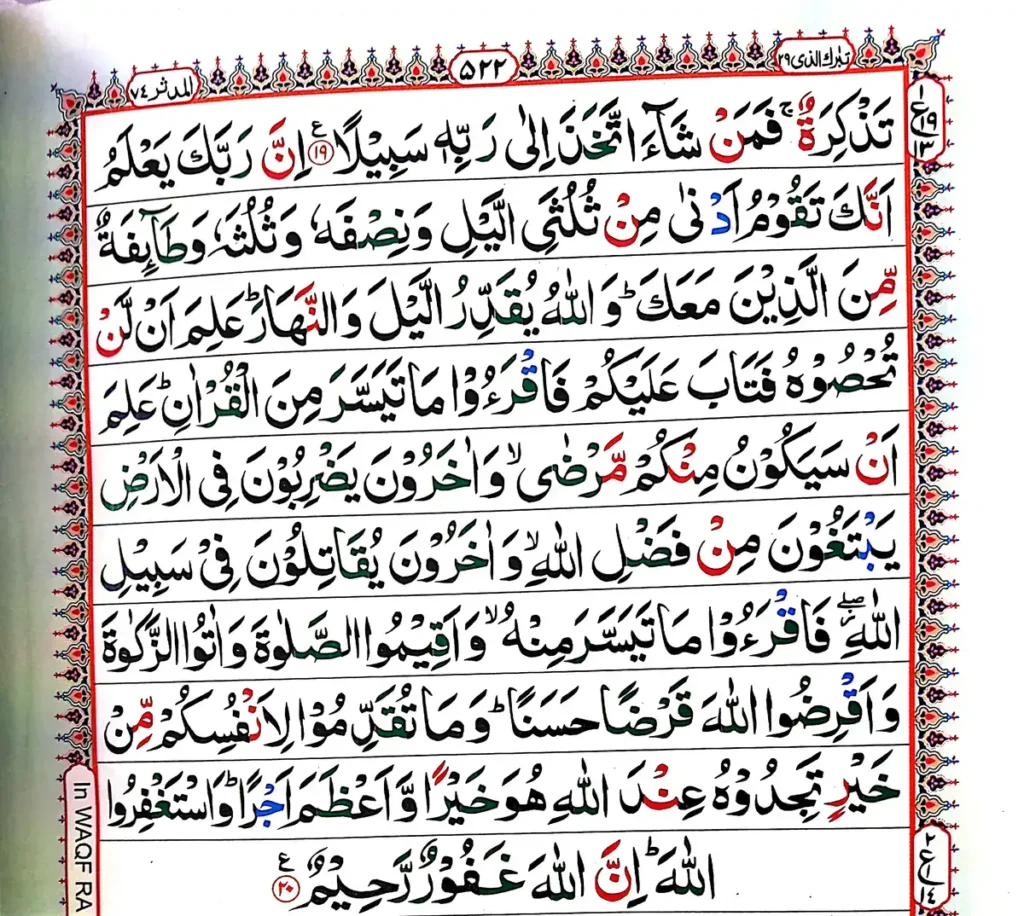 المدثر ٧٤ ٥٢٢ تبٰرك الذی ٢٩
تَذْكِرَةٌ ۚ فَمَنْ شَآءَ اتَّخَذَ اِلٰى رَبِّهٖ سَبِيْلًا ع ١٩ اِنَّ رَبَّكَ يَعْلَمُ
اَنَّكَ تَقُوْمُ اَدْنٰى مِنْ ثُلُثَىِ الَّيْلِ وَنِصْفَهٗ وَثُلُثَهٗ وَطَآئِفَةٌ
مِّنَ الَّذِيْنَ مَعَكَ ؕ وَاللّٰهُ يُقَدِّرُ الَّيْلَ وَالنَّهَارَ ؕ عَلِمَ اَنْ لَّنْ
تُحْصُوْهُ فَتَابَ عَلَيْكُمْ فَاقْرَءُوْا مَا تَيَسَّرَ مِنَ الْقُرْاٰنِ ؕ عَلِمَ
اَنْ سَيَكُوْنُ مِنْكُمْ مَّرْضٰى ۙ وَاٰخَرُوْنَ يَضْرِبُوْنَ فِى الْاَرْضِ
يَبْتَغُوْنَ مِنْ فَضْلِ اللّٰهِ ۙ وَاٰخَرُوْنَ يُقَاتِلُوْنَ فِىْ سَبِيْلِ
اللّٰهِ ۖ فَاقْرَءُوْا مَا تَيَسَّرَ مِنْهُ ۙ وَاَقِيْمُوا الصَّلٰوةَ وَاٰتُوا الزَّكٰوةَ
وَاَقْرِضُوا اللّٰهَ قَرْضًا حَسَنًا ؕ وَمَا تُقَدِّمُوْا لِاَنْفُسِكُمْ مِّنْ
خَيْرٍ تَجِدُوْهُ عِنْدَ اللّٰهِ هُوَ خَيْرًا وَّاَعْظَمَ اَجْرًا ؕ وَاسْتَغْفِرُوا
اللّٰهَ ؕ اِنَّ اللّٰهَ غَفُوْرٌ رَّحِيْمٌ ع ٢٠
١ ع ١٩ ١٣
٢ ع ١ ١٤
In WAQF RA